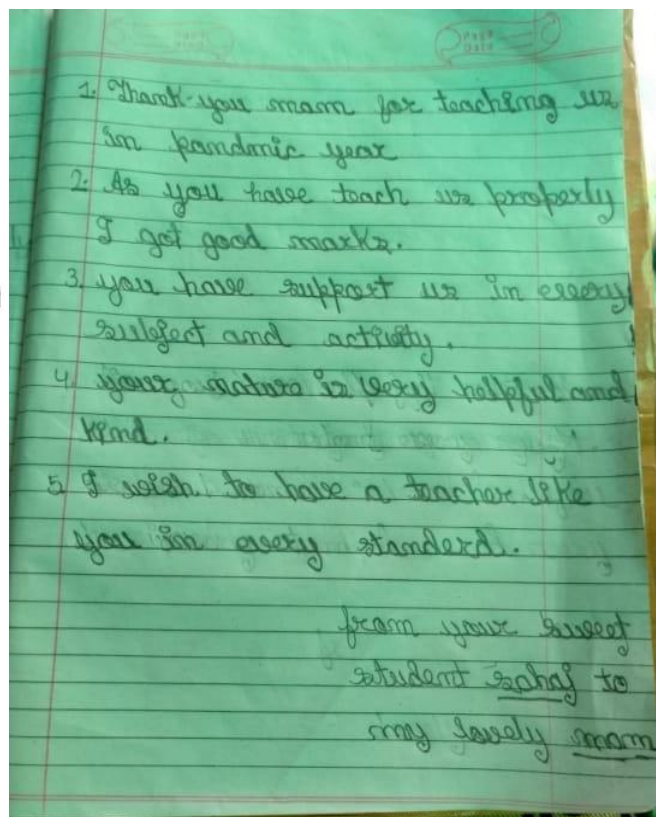 PAGE
DATE
1. Thank you mam for teaching us
in pandmic year
2. As you have teach us properly
I got good marks.
3. you have support us in every
subject and activity.
4. your nature is very helpful and
kind.
5. I wish to have a teacher like
you in every standerd.
from your sweet
student sahaj to
my lovely mam